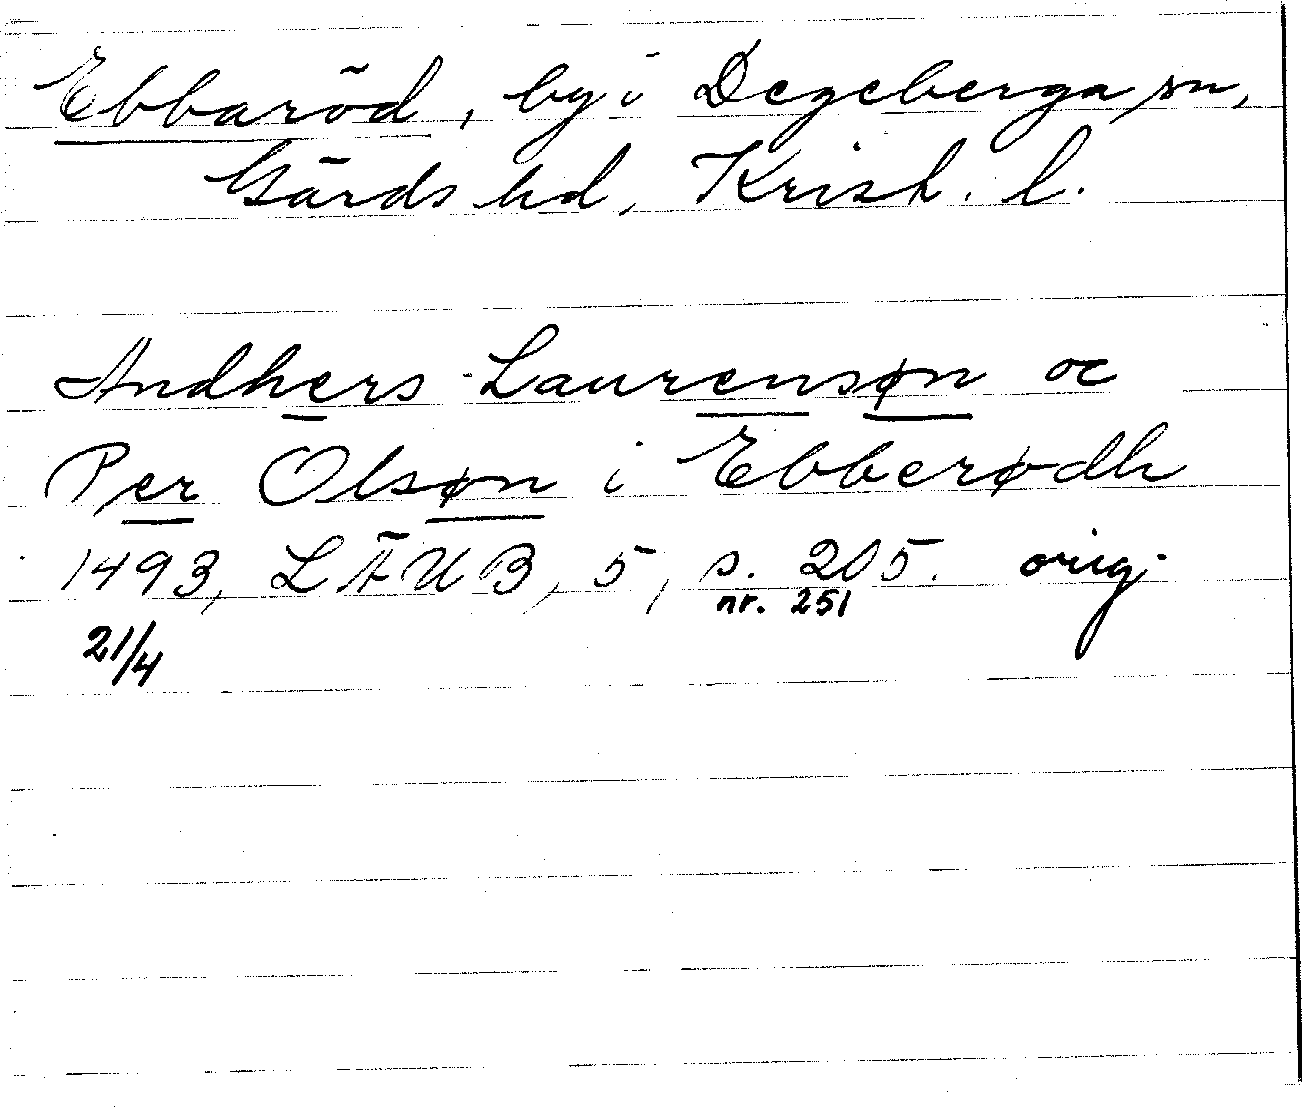 Ebbaröd, by i Degeberga sn,
Gärds hd, Krist. l.
Andhers Laurensøn oc
Per Olsøn i Ebberødh
1493, LÄUB, 5, s. 205. orig.
nr. 251
21/4